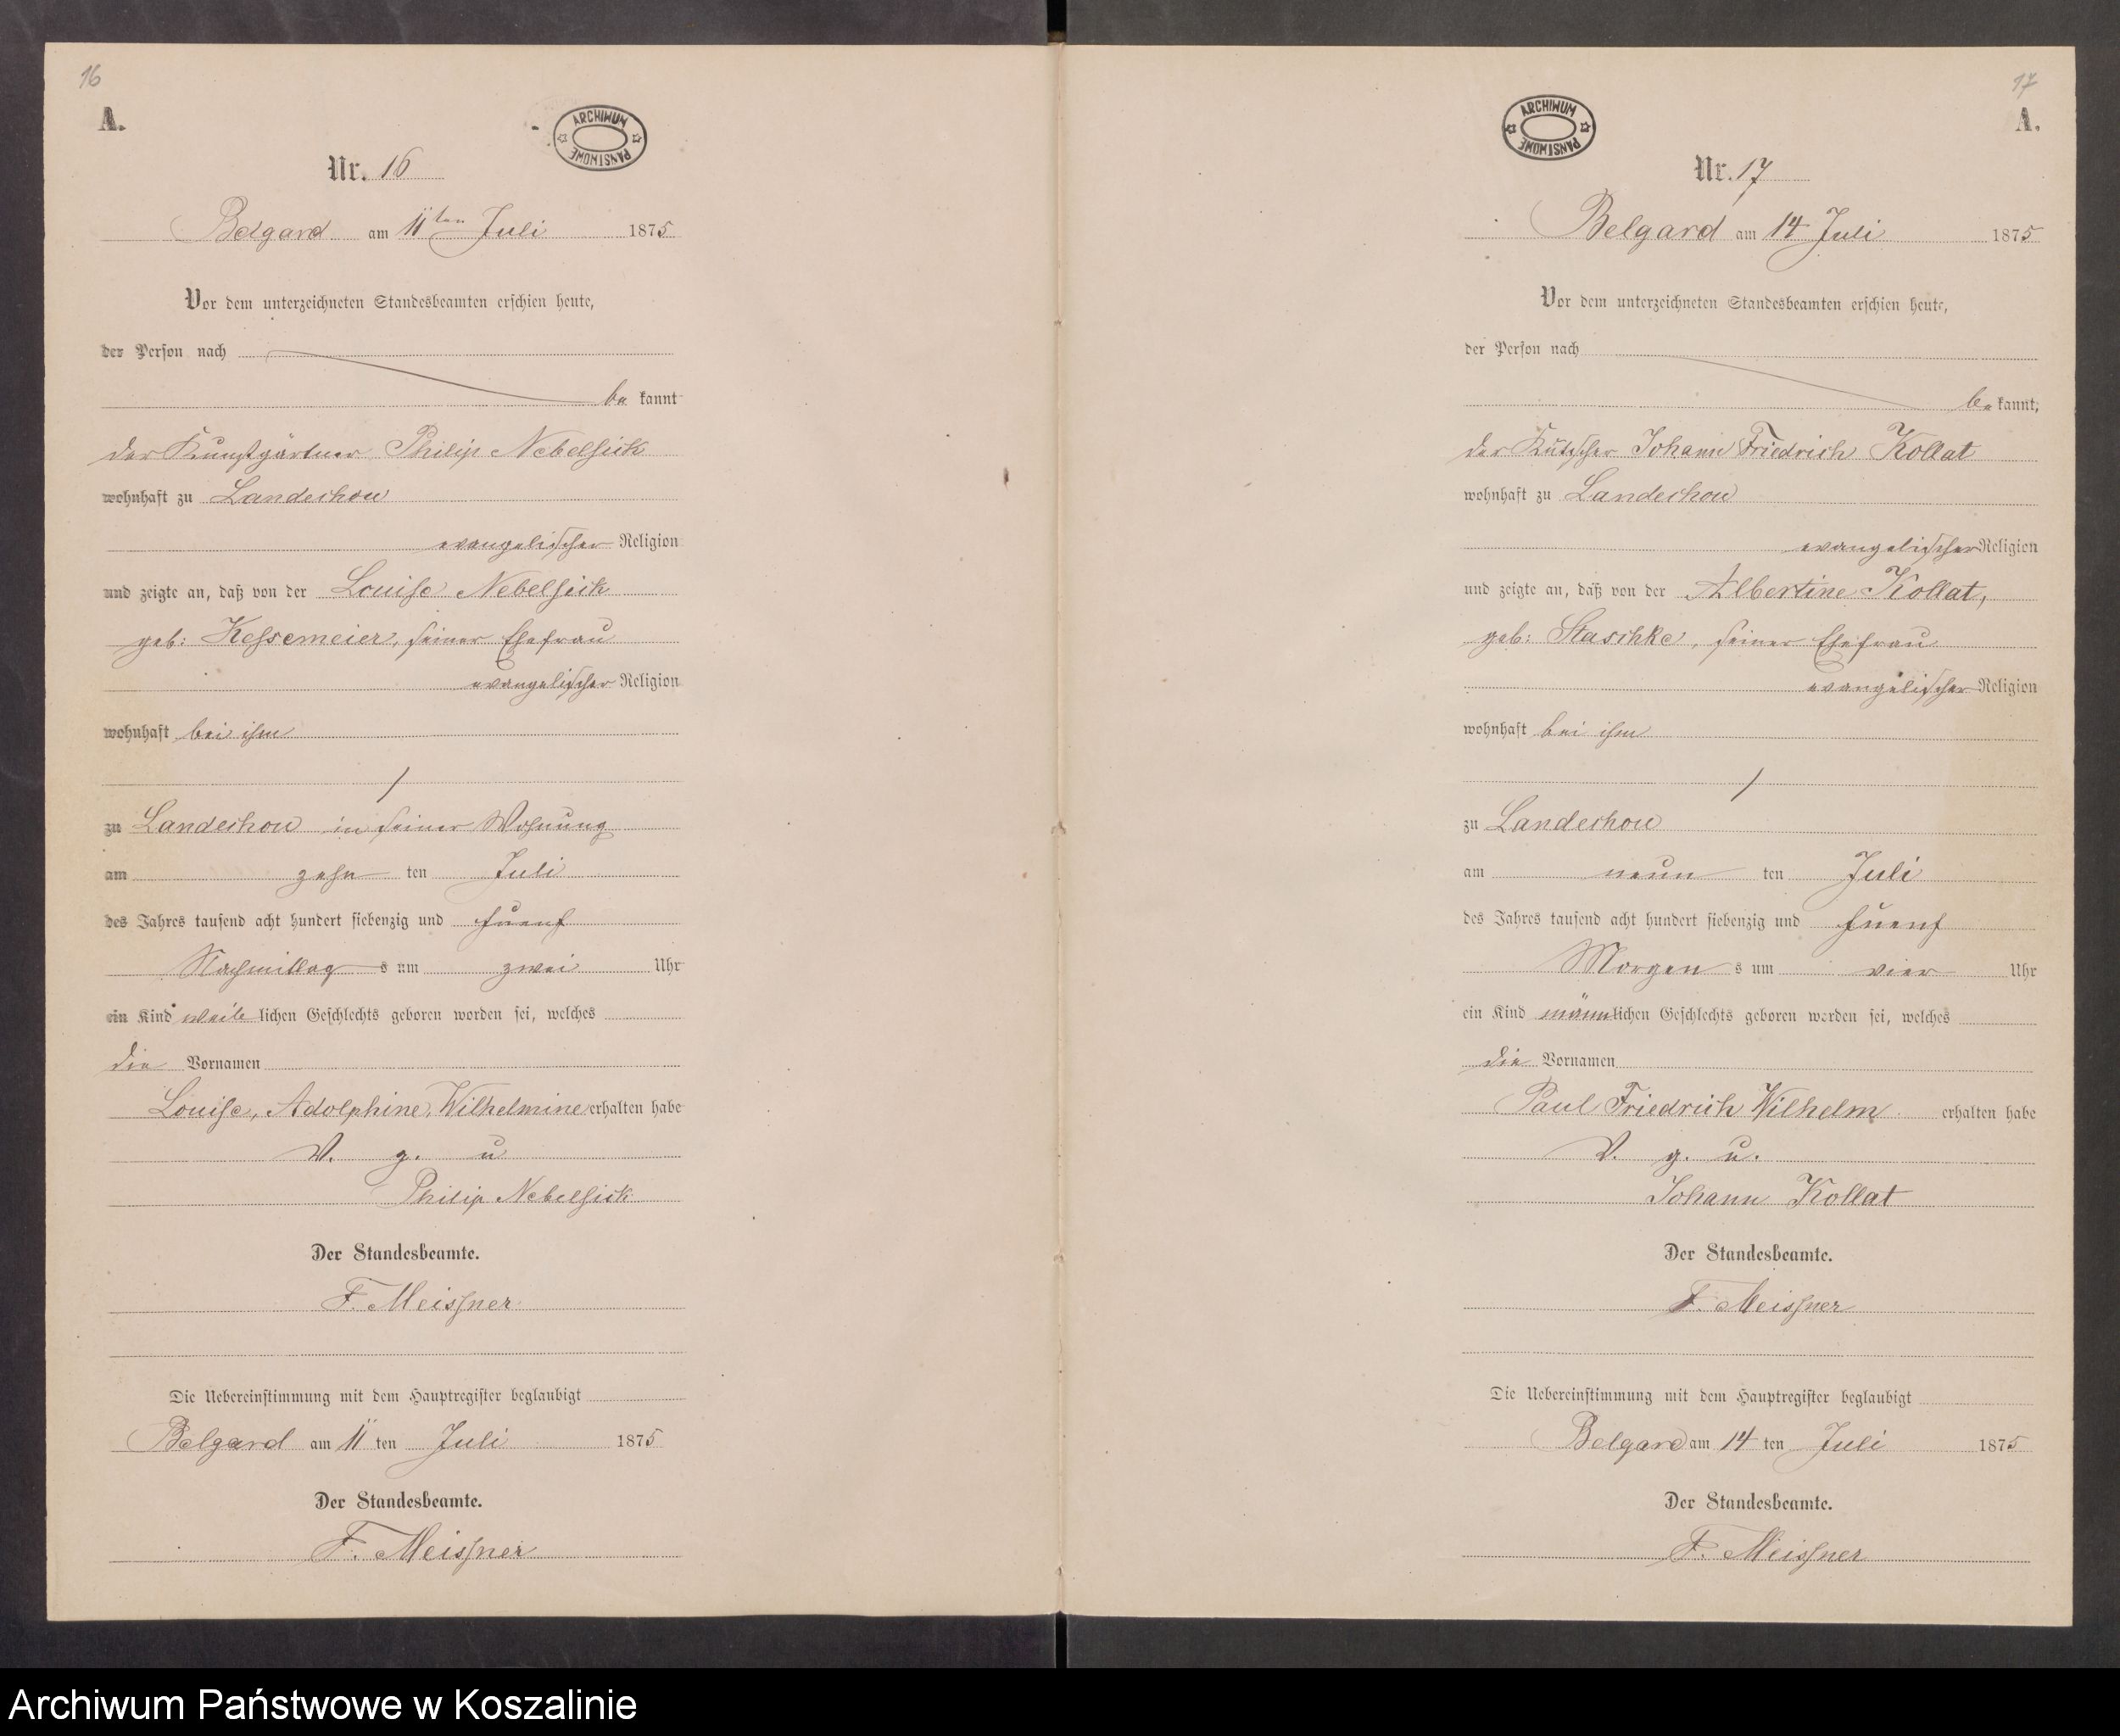 16
A.
ARCHIWUM PAŃSTWOWE
Nr. 16
Belgard am 11ten Juli 1875
Vor dem unterzeichneten Standesbeamten erschien heute,
der Person nach
be kannt
der Kunstgärtner Philip Nebelsick
wohnhaft zu Landechow
evangelischer Religion
und zeigte an, daß von der Louise Nebelsick
geb: Kessemeier, seiner Ehefrau
evangelischer Religion
wohnhaft bei ihm
/
zu Landechow in seiner Wohnung
am zehn ten Juli
des Jahres tausend acht hundert siebenzig und fuenf
Nachmittag s um zwei Uhr
ein Kind weib lichen Geschlechts geboren worden sei, welches
die Vornamen
Louise, Adolphine, Wilhelmine erhalten habe
V. g. u
Philip Nebelsick
Der Standesbeamte.
F. Meissner
Die Uebereinstimmung mit dem Hauptregister beglaubigt
Belgard am 11 ten Juli 1875
Der Standesbeamte.
F. Meissner
17
A.
ARCHIWUM PAŃSTWOWE
Nr. 17
Belgard am 14 Juli 1875
Vor dem unterzeichneten Standesbeamten erschien heute,
der Person nach
be kannt,
der Kutscher Johann Friedrich Kollat
wohnhaft zu Landechow
evangelischer Religion
und zeigte an, daß von der Albertine Kollat,
geb: Staschke, seiner Ehefrau
evangelischer Religion
wohnhaft bei ihm
/
zu Landechow
am neun ten Juli
des Jahres tausend acht hundert siebenzig und fuenf
Morgen s um vier Uhr
ein Kind männlichen Geschlechts geboren worden sei, welches
die Vornamen
Paul Friedrich Wilhelm erhalten habe
V. g. u.
Johann Kollat
Der Standesbeamte.
F. Meissner
Die Uebereinstimmung mit dem Hauptregister beglaubigt
Belgard am 14 ten Juli 1875
Der Standesbeamte.
F. Meissner
Archiwum Państwowe w Koszalinie